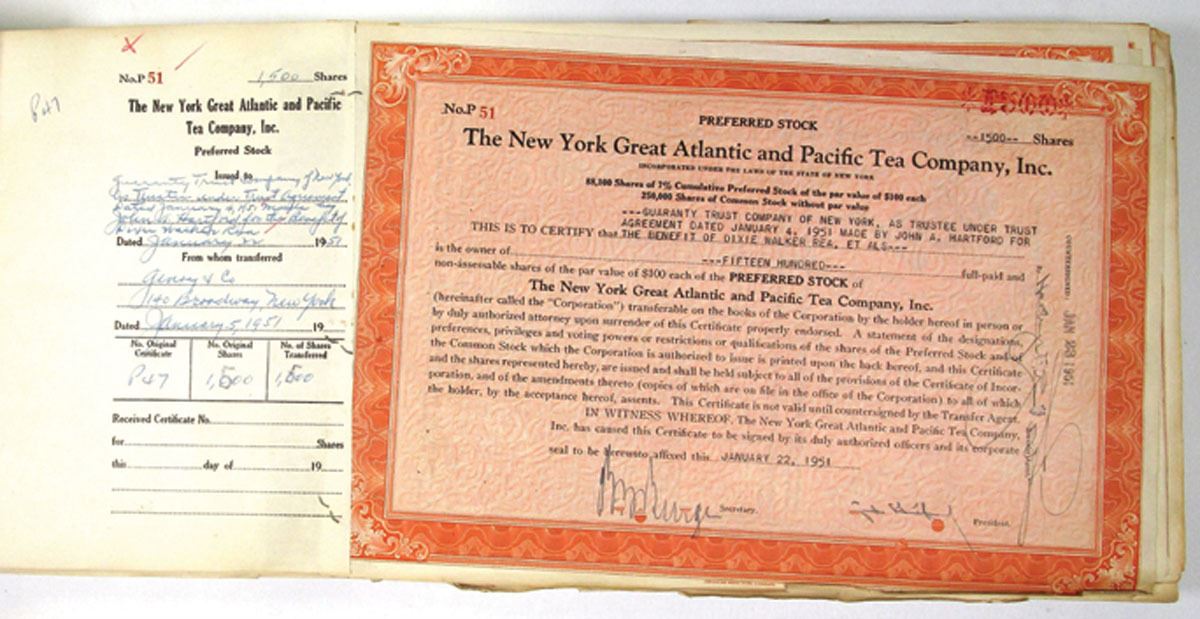 P47
x
No.P 51 1,500 Shares
The New York Great Atlantic and Pacific
Tea Company, Inc.
Preferred Stock
Issued to
Guaranty Trust Company of New York
as Trustee under Trust Agreement
dated January 4, 1951 made by
John A. Hartford for the Benefit of
Dixie Walker Rea
Dated January 22 1951
From whom transferred
& Co
140 Broadway, New York
Dated January 5, 1951 19
No. Original Certificate No. Original Shares No. of Shares Transferred
P47 1,500 1,500
Received Certificate No.
for Shares
this day of 19
1500
No.P 51
PREFERRED STOCK
--1500-- Shares
The New York Great Atlantic and Pacific Tea Company, Inc.
INCORPORATED UNDER THE LAWS OF THE STATE OF NEW YORK
88,800 Shares of 7% Cumulative Preferred Stock of the par value of $100 each
250,000 Shares of Common Stock without par value
---GUARANTY TRUST COMPANY OF NEW YORK, AS TRUSTEE UNDER TRUST
AGREEMENT DATED JANUARY 4, 1951 MADE BY JOHN A. HARTFORD FOR
THIS IS TO CERTIFY that THE BENEFIT OF DIXIE WALKER REA, ET ALS---
is the owner of ---FIFTEEN HUNDRED--- full-paid and
non-assessable shares of the par value of $100 each of the PREFERRED STOCK of
The New York Great Atlantic and Pacific Tea Company, Inc.
(hereinafter called the "Corporation") transferable on the books of the Corporation by the holder hereof in person or
by duly authorized attorney upon surrender of this Certificate properly endorsed. A statement of the designations,
preferences, privileges and voting powers or restrictions or qualifications of the shares of the Preferred Stock and of
the Common Stock which the Corporation is authorized to issue is printed upon the back hereof, and this Certificate
and the shares represented hereby, are issued and shall be held subject to all of the provisions of the Certificate of Incor-
poration, and of the amendments thereto (copies of which are on file in the office of the Corporation) to all of which
the holder, by the acceptance hereof, assents. This Certificate is not valid until countersigned by the Transfer Agent.
IN WITNESS WHEREOF, The New York Great Atlantic and Pacific Tea Company,
Inc. has caused this Certificate to be signed by its duly authorized officers and its corporate
seal to be hereunto affixed this JANUARY 22, 1951
Secretary.
President.
COUNTERSIGNED JAN 23 1951